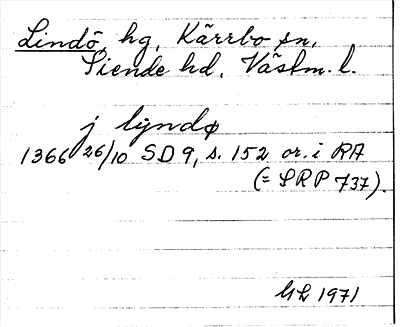 Lindö, hg, Kärrbo sn,
Siende hd, Västm. l.
j lyndø
1366 26/10 SD 9, s. 152 or. i RA
(= SRP 737).
ML 1971